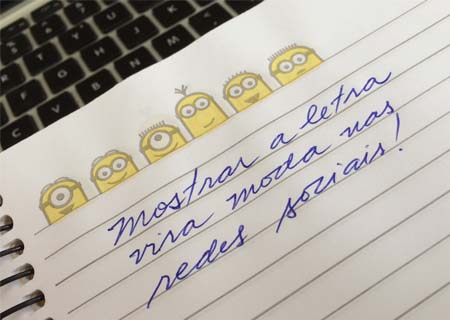 mostrar a letra
vira moda nas
redes sociais!